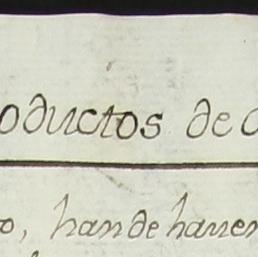 oductos de
o, han de haver